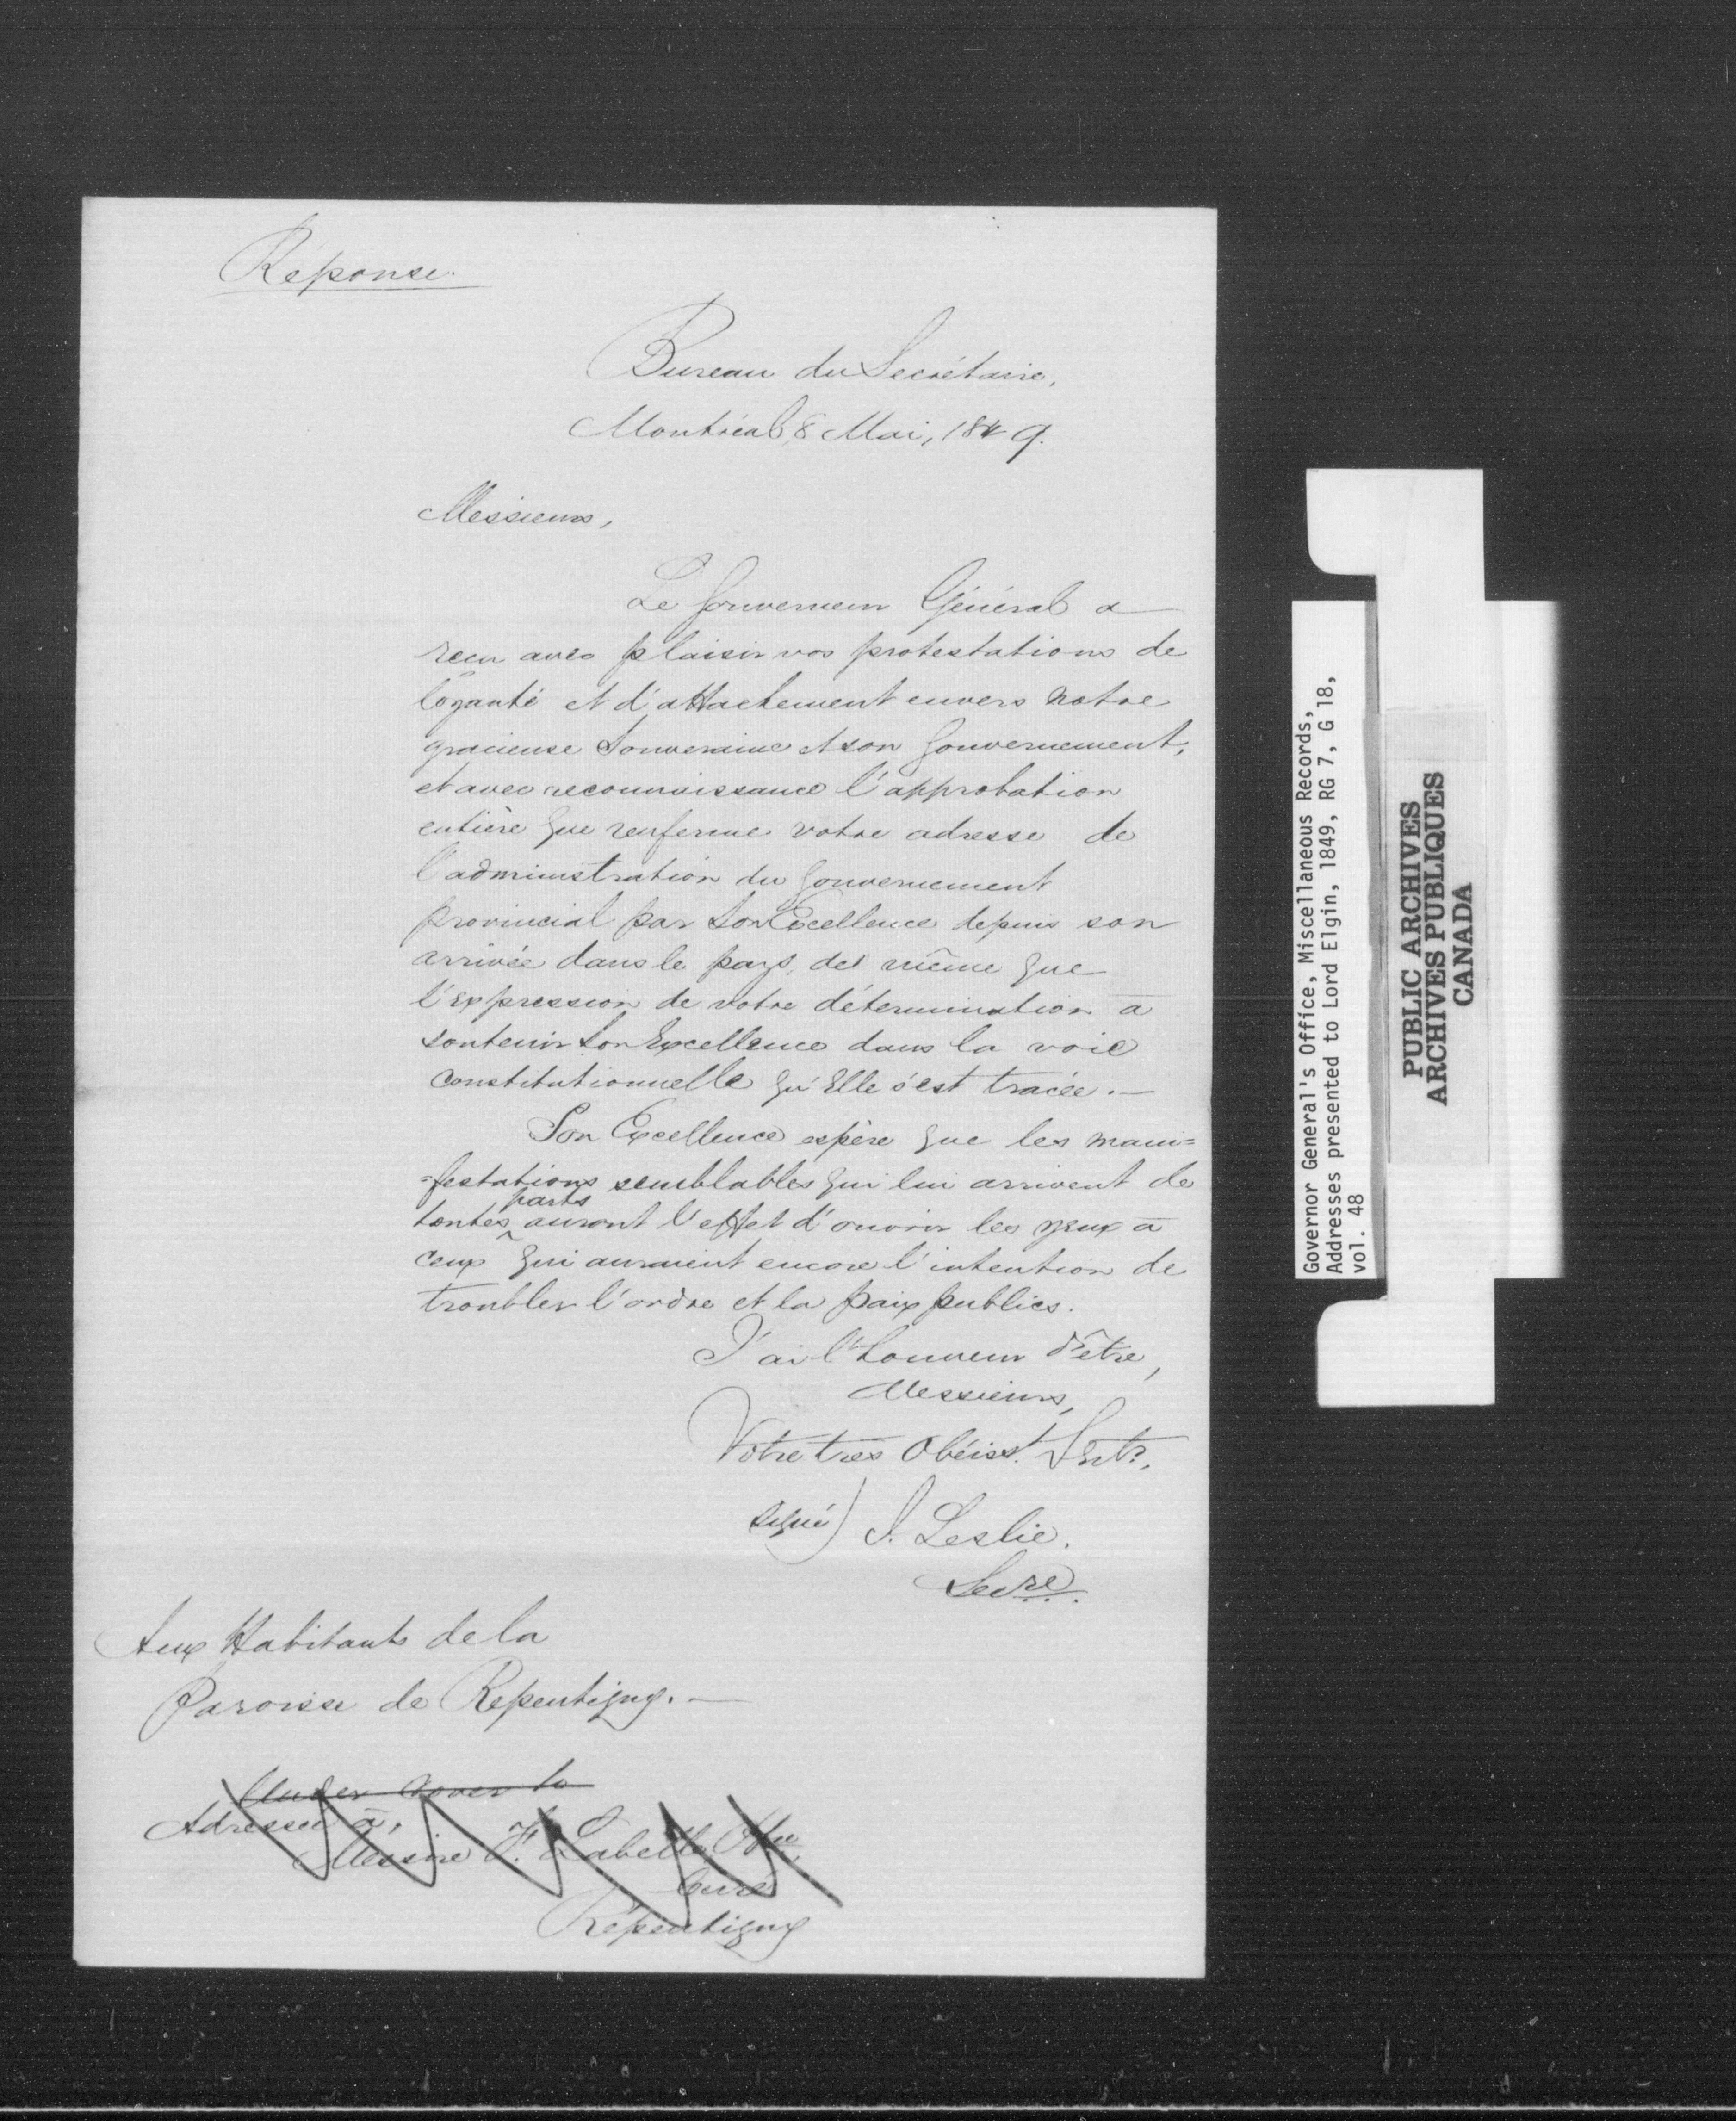 Réponse.
Bureau du Secrétaire,
Montréal, 8 Mai, 1849.
Messieurs,
Le Gouverneur Général a
recu avec plaisir vos protestations de
loyauté et d'attachement envers notre
gracieuse Souveraine et son Gouvernement,
et avec reconnaissance l'approbation
entière que renferme votre adresse de
l'administration du Gouvernement
provincial par Son Excellence depuis son
arrivée dans le pays, de même que
l'expression de votre détermination à
soutenir Son Excellence dans la voie
constitutionnelle qu'Elle s'est tracée.—
Son Excellence espère que les mani=
=festations semblables qui lui arrivent de
toutes parts auront l'effet d'ouvrir les yeux à
ceux qui auraient encore l'intention de
troubler l'ordre et la paix publics.
J'ai l'honneur d'être,
Messieurs,
Votre très obéisst. Servt.
signé) J. Leslie.
Secre.
Aux Habitants de la
Paroisse de Repentigny.—
Under cover to
Adressée à,
Messire F. Labelle Ptre
Curé
Répentigny
Governor General's Office, Miscellaneous Records,
Addresses presented to Lord Elgin, 1849, RG 7, G 18,
vol. 48
PUBLIC ARCHIVES
ARCHIVES PUBLIQUES
CANADA